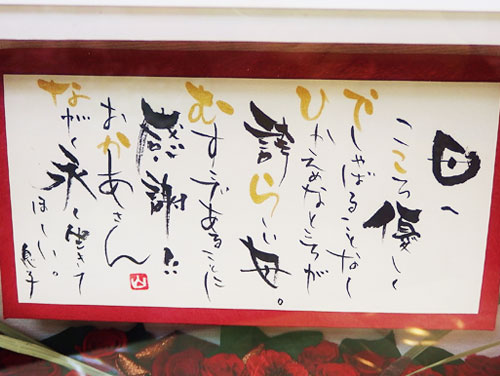 母へ
こころ優しく
でしゃばることなく
ひかえめなところが
誇らしい母。
むすこであることに
感謝!!
おかあさん
ながく永く生きて
ほしい。
息子